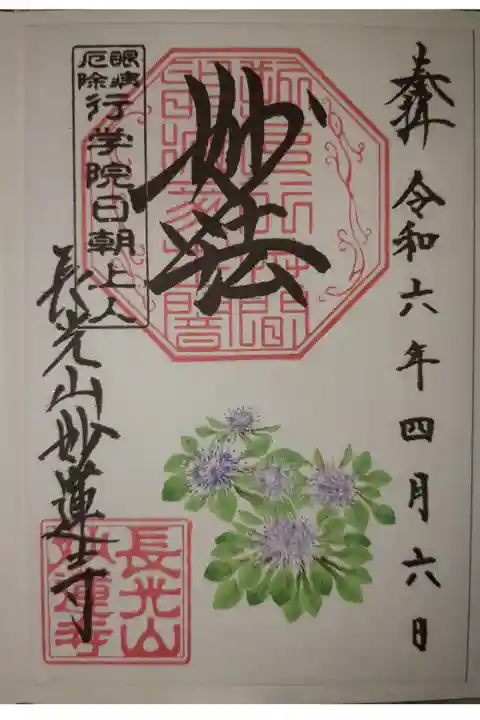 奉拝
令和六年四月六日
妙法
眼病
厄除
行学院日朝上人
長光山妙蓮寺
長光山
妙蓮寺